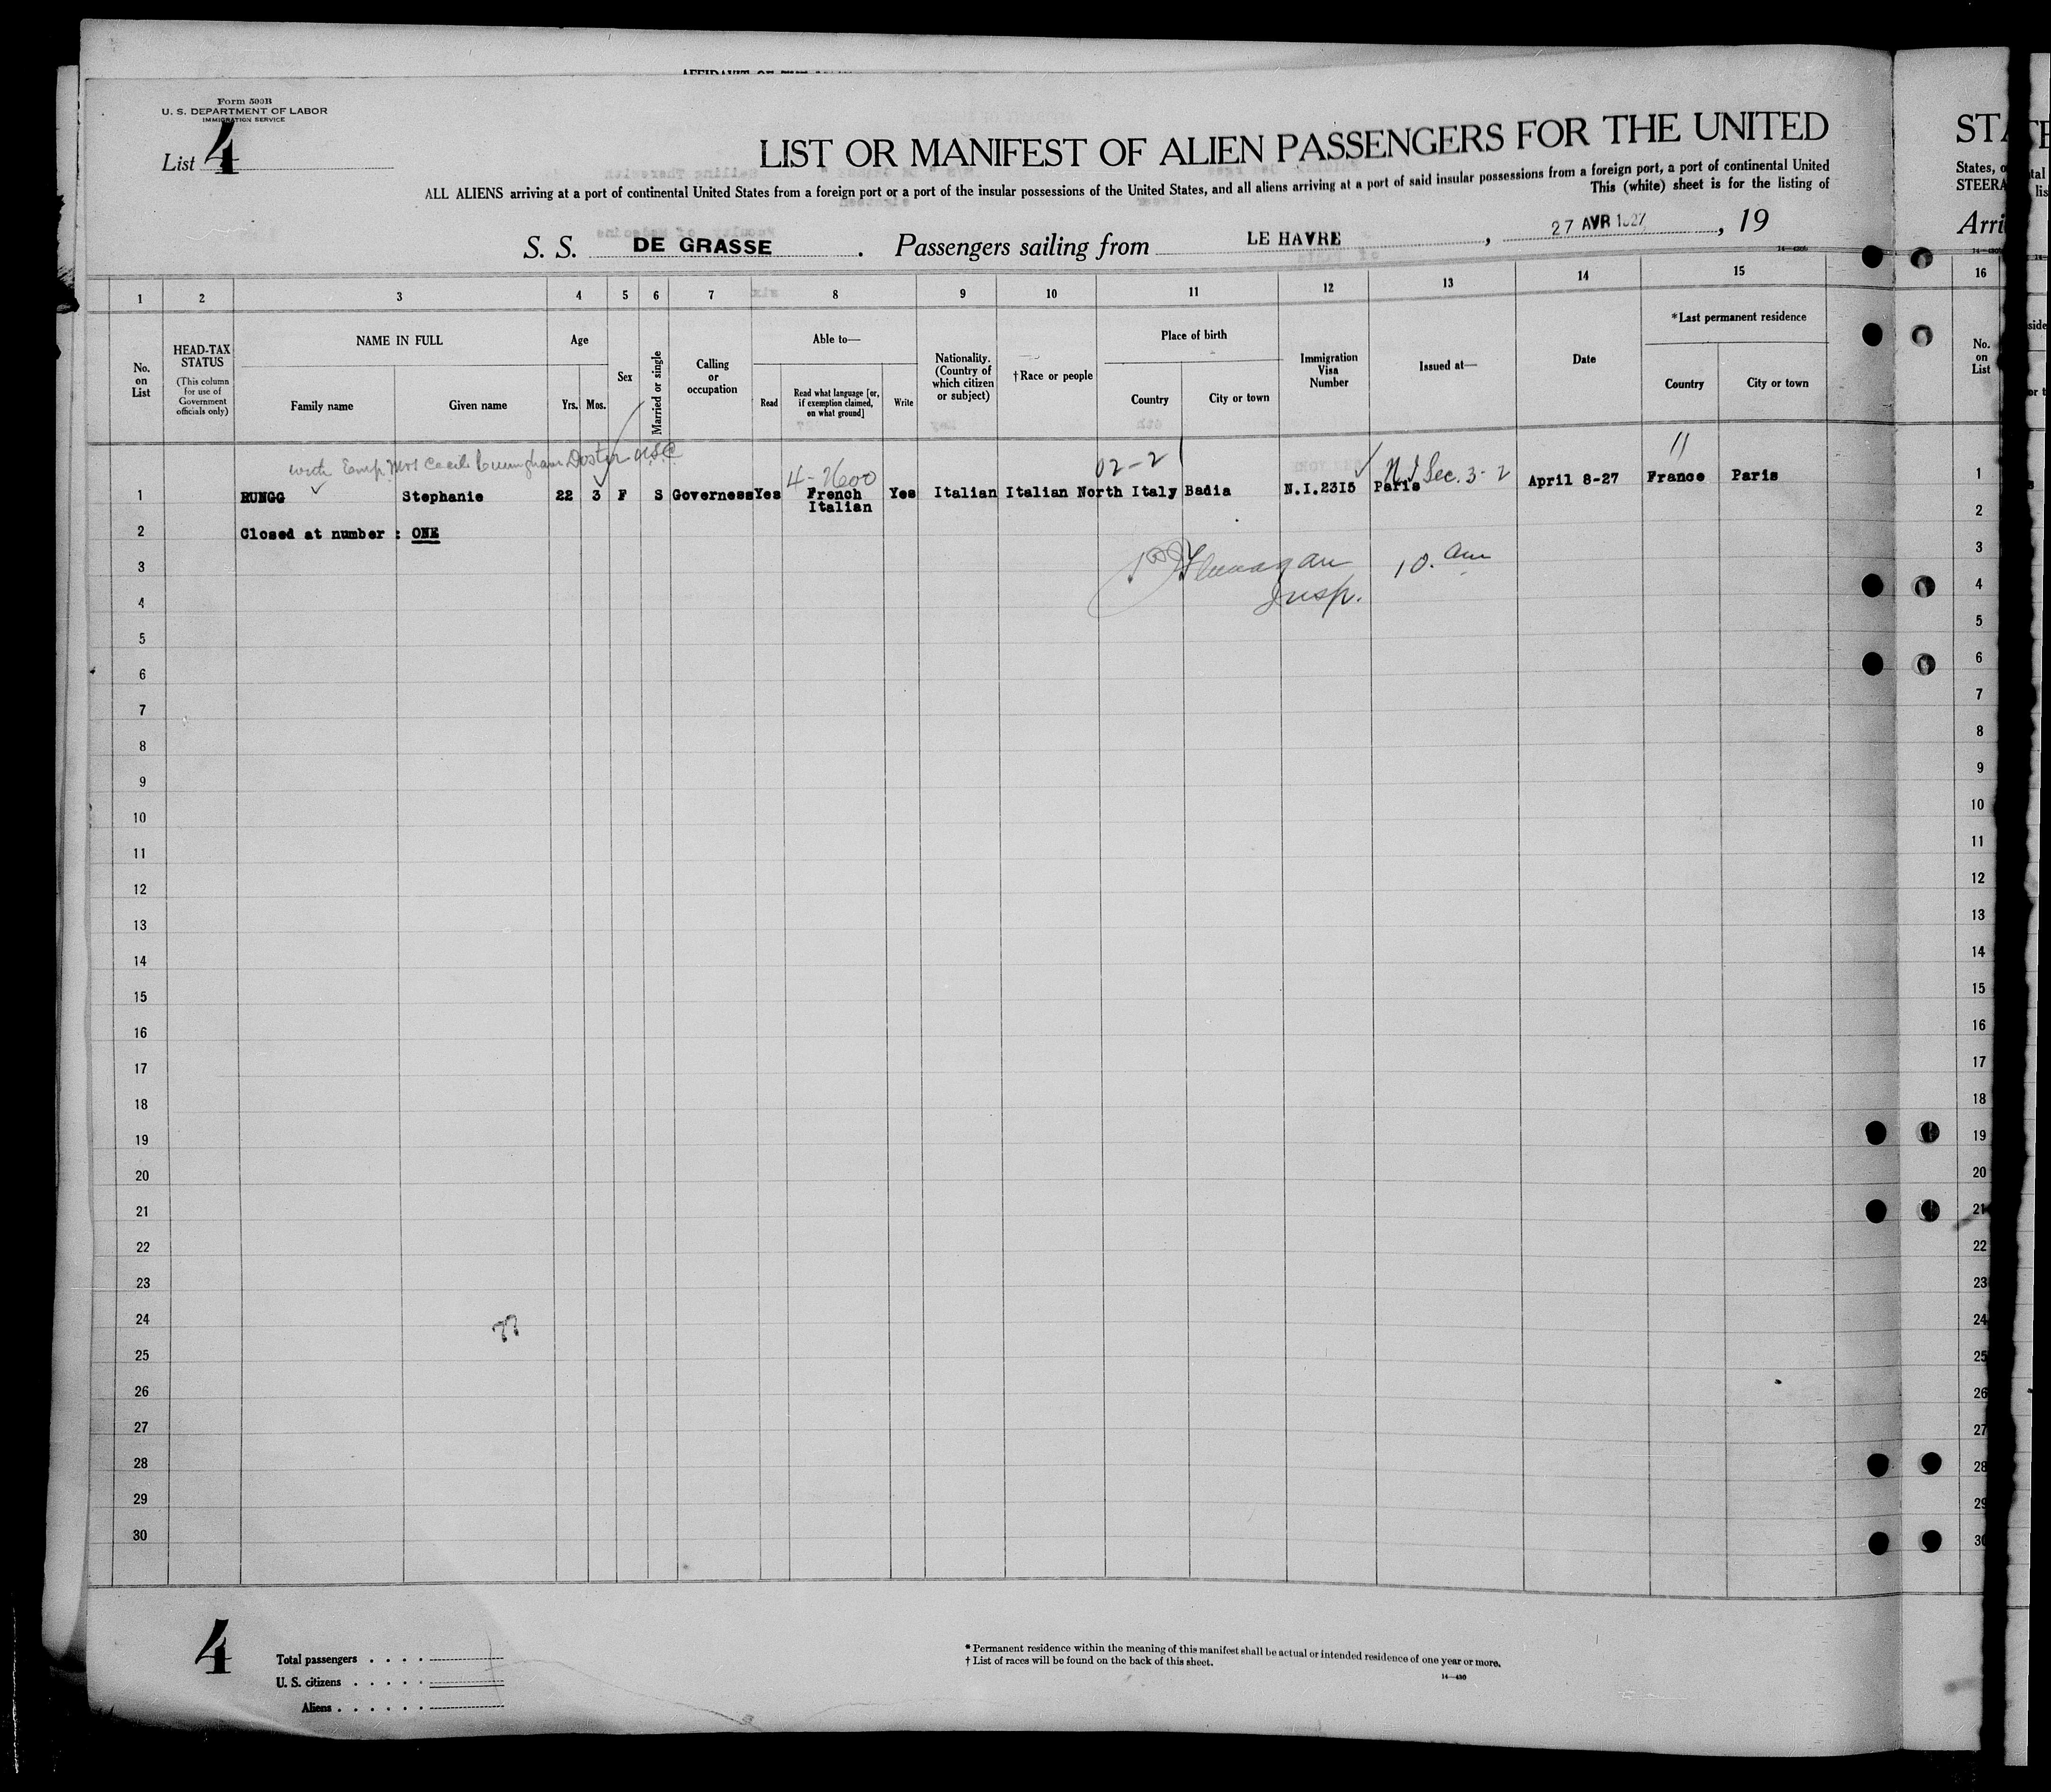 Form 500B
U. S. DEPARTMENT OF LABOR
IMMIGRATION SERVICE
List 4
LIST OR MANIFEST OF ALIEN PASSENGERS FOR THE UNITED
ALL ALIENS arriving at a port of continental United States from a foreign port or a port of the insular possessions of the United States, and all aliens arriving at a port of said insular possessions from a foreign port, a port of continental United
This (white) sheet is for the listing of
S. S. DE GRASSE . Passengers sailing from LE HAVRE , 27 AVR 1927 , 19
STA
States, o
STEERA
Arri
1 2 3 4 5 6 7 8 9 10 11 12 13 14 15 16
No. on List
HEAD-TAX STATUS
(This column for use of Government officials only)
NAME IN FULL
Family name
Given name
Age
Yrs. Mos.
Sex
Married or single
Calling or occupation
Able to—
Read
Read what language [or, if exemption claimed, on what ground]
Write
Nationality. (Country of which citizen or subject)
†Race or people
Place of birth
Country
City or town
Immigration Visa Number
Issued at—
Date
*Last permanent residence
Country
City or town
No. on List
with Emp. Mrs Cecile Cunningham Doster USC
4-2600 02-2 N I Sec. 3-2
1 RUNGG Stephanie 22 3 F S Governess Yes French Yes Italian Italian North Italy Badia N.I.2315 Paris April 8-27 France Paris 1
Italian
2 Closed at number : ONE 2
3 Flanagan 10. am 3
Insp.
4 4
5 5
6 6
7 7
8 8
9 9
10 10
11 11
12 12
13 13
14 14
15 15
16 16
17 17
18 18
19 19
20 20
21 21
22 22
23 23
24 24
25 25
26 26
27 27
28 28
29 29
30 30
4
Total passengers . . . .
U. S. citizens . . . . .
Aliens . . . . . .
* Permanent residence within the meaning of this manifest shall be actual or intended residence of one year or more.
† List of races will be found on the back of this sheet.
14—430